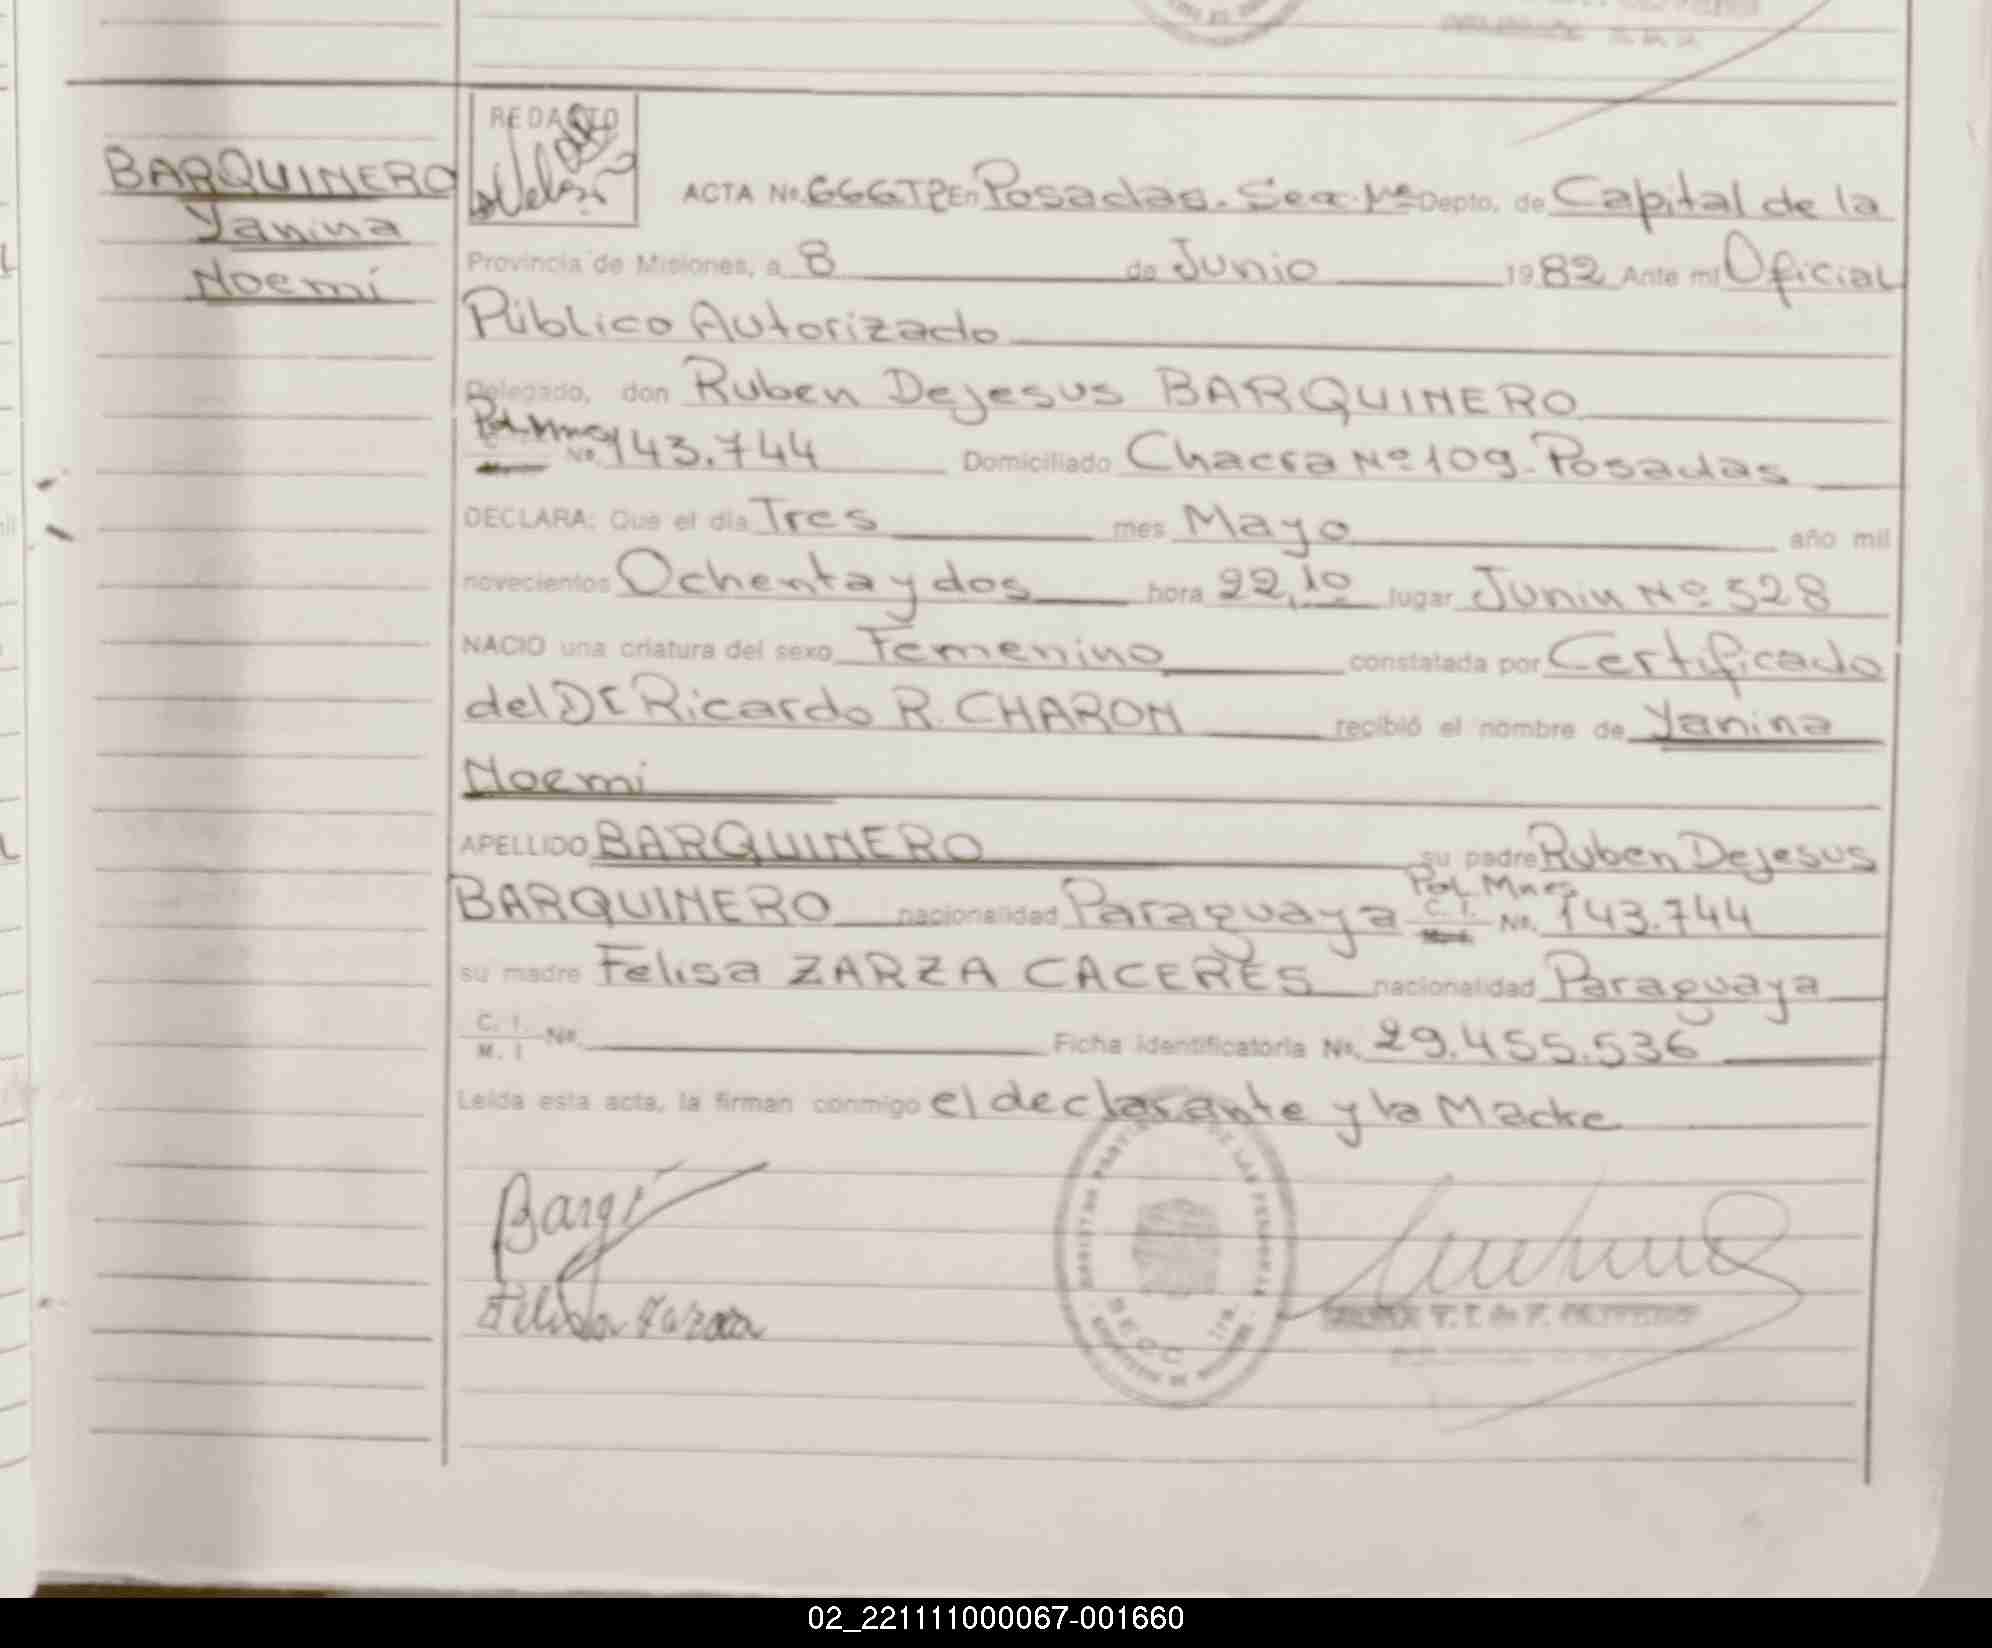 REDACTO
BARQUINERO
Yanina
Noemi
ACTA No. 666TP En Posadas. Secc. 1ª Depto. de Capital de la
Provincia de Misiones, a 8 de Junio 1982 Ante mi Oficial
Público Autorizado
Delegado, don Ruben Dejesus BARQUINERO
Pol. Mnes No. 143.744 Domiciliado Chacra Nº 109 - Posadas
DECLARA: Que el día Tres mes Mayo año mil
novecientos Ochenta y dos hora 22,10 lugar Junin Nº 528
NACIO una criatura del sexo Femenino constatada por Certificado
del Dr Ricardo R. CHARON recibió el nombre de Yanina
Noemi
APELLIDO BARQUINERO su padre Ruben Dejesus
BARQUINERO nacionalidad Paraguaya Pol. Mnes C. I. No. 143.744
su madre Felisa ZARZA CACERES nacionalidad Paraguaya
C. I. M. I No. Ficha identificatoria No. 29.455.536
Leída esta acta, la firman conmigo el declarante y la Madre
Felisa Zarza
02_221111000067-001660